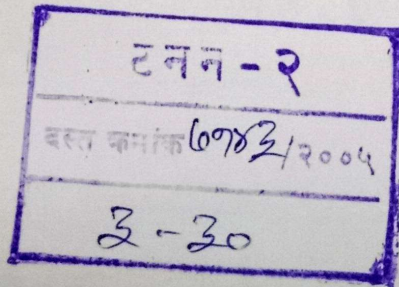 टनन - २
दस्त क्रमांक ७१४३/२००५
३ - ३०